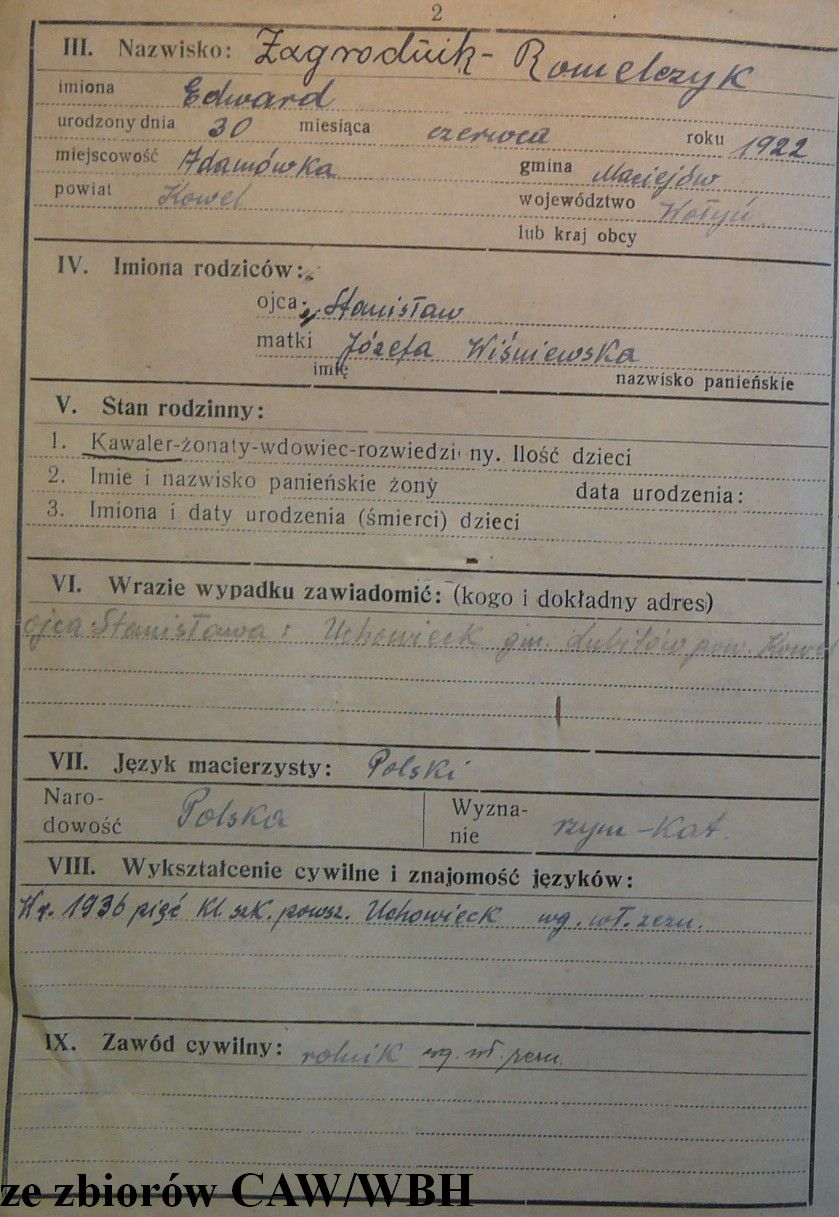 2
III. Nazwisko: Zagrodnik-Romelczyk
imiona Edward
urodzony dnia 30 miesiąca czerwca roku 1922
miejscowość Adamówka gmina Maciejów
powiat Kowel województwo Wołyń
lub kraj obcy
IV. Imiona rodziców:
ojca Stanisław
matki Józefa Wiśniewska
imię nazwisko panieńskie
V. Stan rodzinny:
1. Kawaler-żonaty-wdowiec-rozwiedziony. Ilość dzieci
2. Imie i nazwisko panieńskie żony data urodzenia:
3. Imiona i daty urodzenia (śmierci) dzieci
VI. Wrazie wypadku zawiadomić: (kogo i dokładny adres)
ojca Stanisława: Uchowieck gm. Lubitów pow. Kowel
VII. Język macierzysty: Polski
Naro-
dowość Polska Wyzna-
nie rzym-kat.
VIII. Wykształcenie cywilne i znajomość języków:
W r. 1936 pięć kl szk. powsz. Uchowieck wg. wł. zezn.
IX. Zawód cywilny: rolnik wg. wł. zezn.
ze zbiorów CAW/WBH